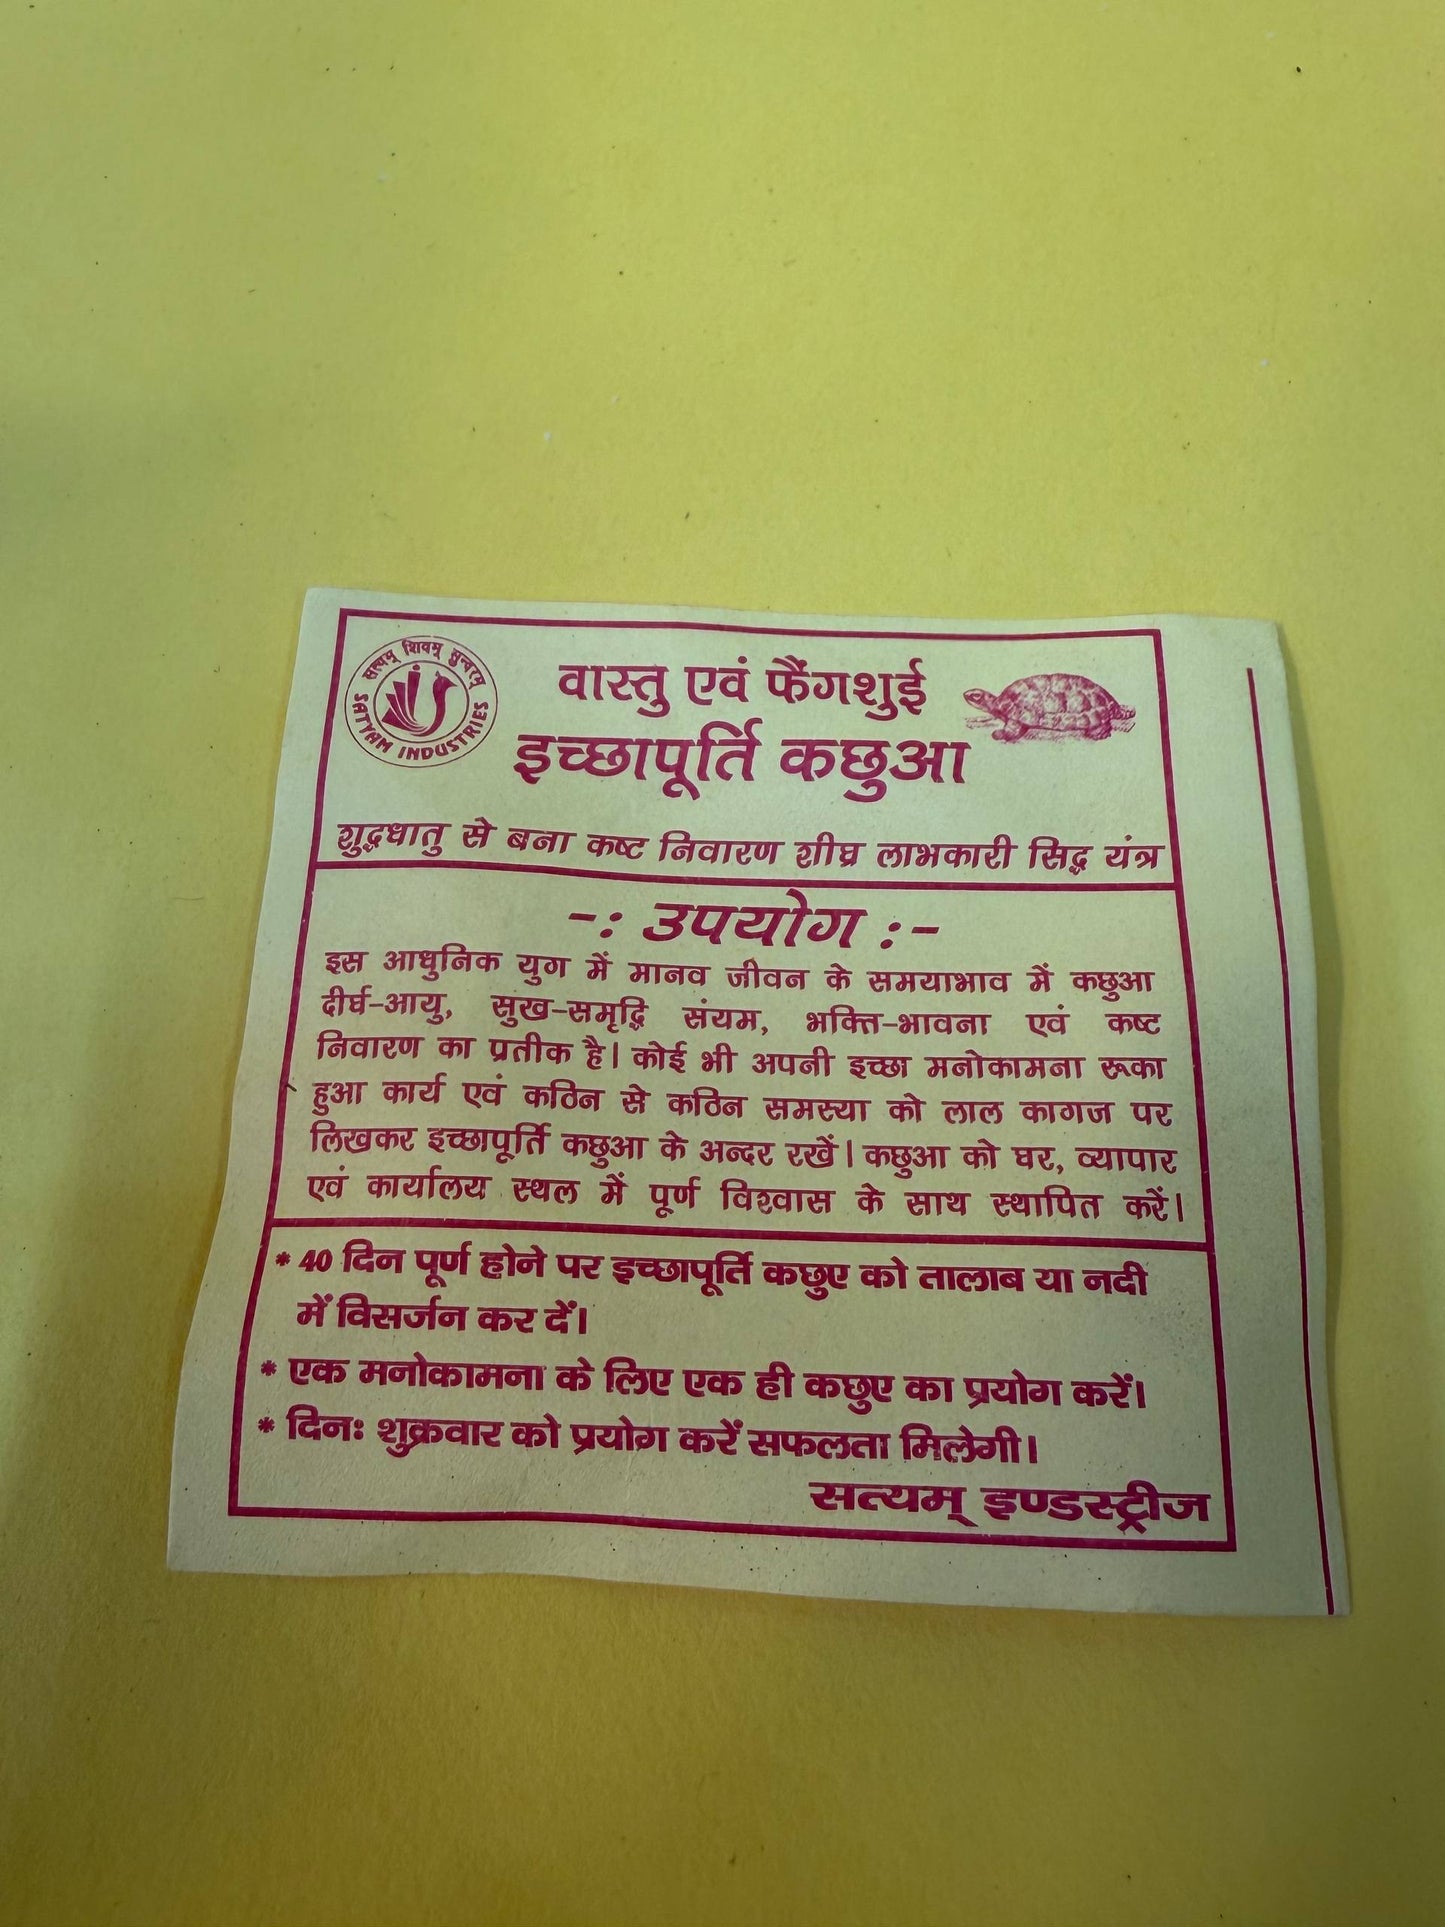 सत्यम् शिवम् सुन्दरम्
SATYAM INDUSTRIES
वास्तु एवं फैंगशुई
इच्छापूर्ति कछुआ
शुद्धधातु से बना कष्ट निवारण शीघ्र लाभकारी सिद्ध यंत्र
-: उपयोग :-
इस आधुनिक युग में मानव जीवन के समयाभाव में कछुआ
दीर्घ-आयु, सुख-समृद्धि संयम, भक्ति-भावना एवं कष्ट
निवारण का प्रतीक है। कोई भी अपनी इच्छा मनोकामना रूका
हुआ कार्य एवं कठिन से कठिन समस्या को लाल कागज पर
लिखकर इच्छापूर्ति कछुआ के अन्दर रखें। कछुआ को घर, व्यापार
एवं कार्यालय स्थल में पूर्ण विश्वास के साथ स्थापित करें।
* 40 दिन पूर्ण होने पर इच्छापूर्ति कछुए को तालाब या नदी
में विसर्जन कर दें।
* एक मनोकामना के लिए एक ही कछुए का प्रयोग करें।
* दिनः शुक्रवार को प्रयोग करें सफलता मिलेगी।
सत्यम् इण्डस्ट्रीज